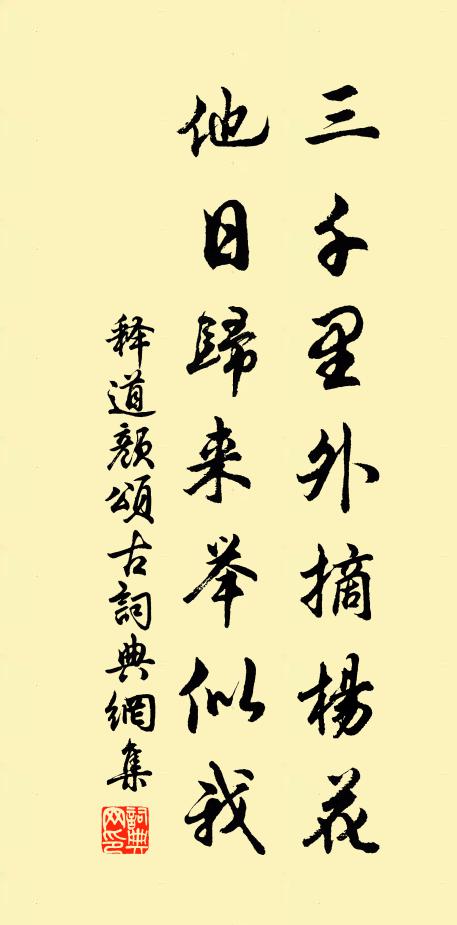 三千里外摘楊花
他日歸来举似我
释道颜頌古詞典網集
詞典网印